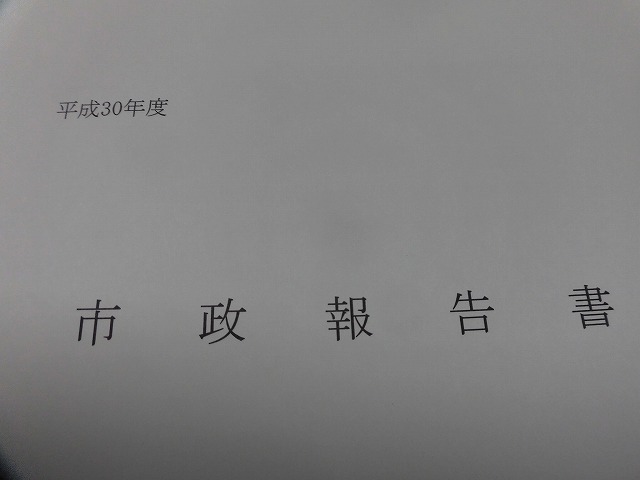 平成30年度
市政報告書